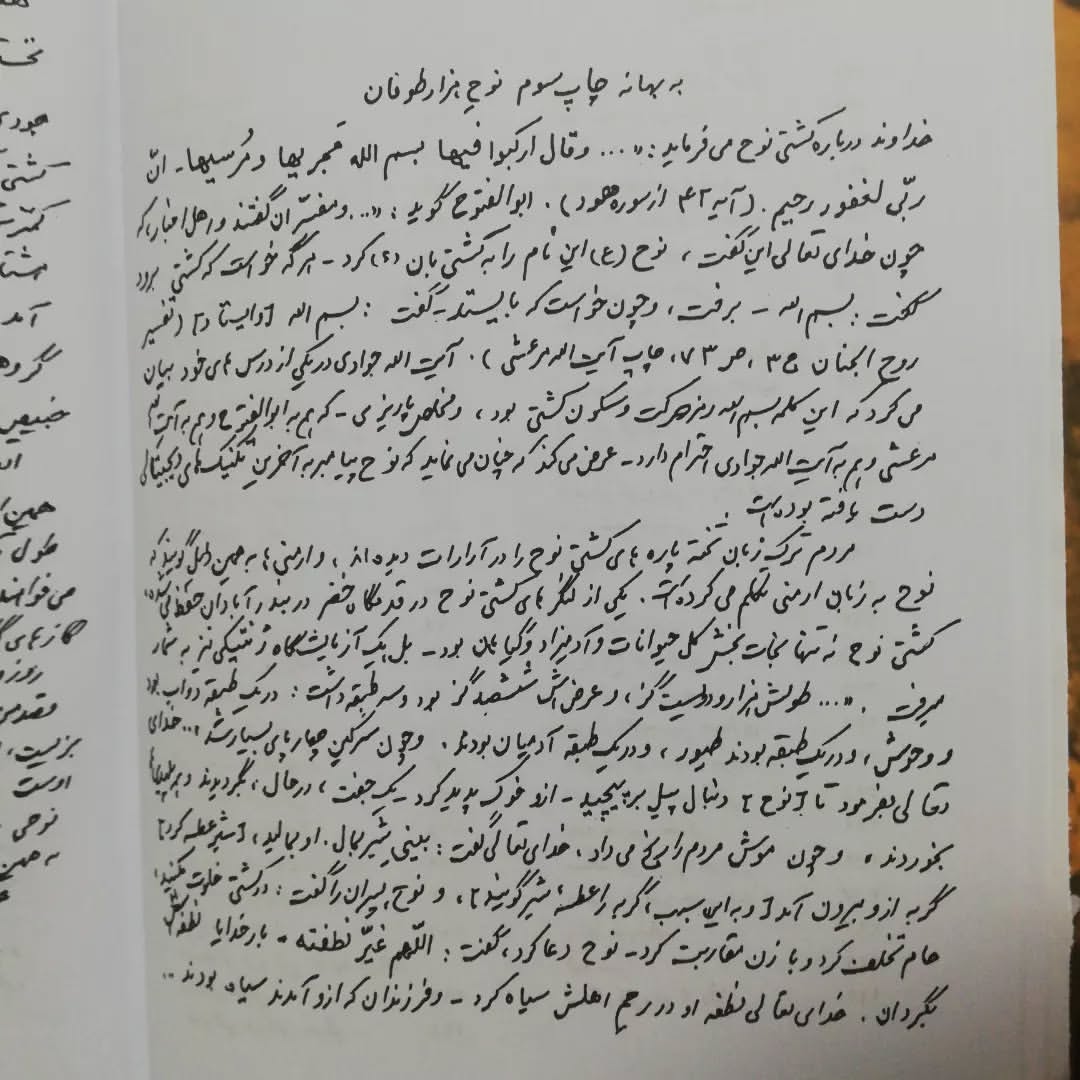 به بهانه چاپ سوم نوحِ هزار طوفان
خداوند درباره کشتی نوح می فرماید: «... وقال ارکبوا فیها بسم الله مجریها و مُرسیها. انّ
ربّی لغفور رحیم. (آیه ۴۲ از سوره هود). ابوالفتوح گوید: «... و مفسّران گفتند و اهل اخبار، که
چون خدای تعالی این گفت، نوح (ع) این نام را به کشتی بان (؟) کرد - هر گه خواست که کشتی برود
گفت: بسم الله - برفت، و چون خواست که بایستد - گفت: بسم الله [وایستاد] (تفسیر
روح الجنان ج ۳، ص ۷۳، چاپ آیت الله مرعشی). آیت الله جوادی در یکی از درس های خود بیان
می کرد که این کلمه بسم الله رمز حرکت و سکون کشتی بود، و مخلص پاریزی - که هم به ابوالفتوح و هم به آیت الله
مرعشی و هم به آیت الله جوادی احترام دارد - عرض می کند که چنان می نماید که نوح پیامبر به آخرین تکنیک های دیجیتالی
دست یافته بوده است.
مردم ترک زبان تخته پاره های کشتی نوح را در آرارات دیده اند، و ارمنی ها به همین دلیل گویند که
نوح به زبان ارمنی تکلم می کرده است. یکی از لنگرهای کشتی نوح در قدمگاه خضر در بندر آبادان حفظ می شده،
کشتی نوح نه تنها نجات بخش کل حیوانات و آدمیزاد و گیاهان بود - بل یک آزمایشگاه ژنتیکی نیز به شمار
میرفت. «... طولش هزار و دویست گز، و عرض اش ششصد گز بود و سه طبقه داشت: در یک طبقه دواب بود
و وحوش، و در یک طبقه بودند طیور، و در یک طبقه آدمیان بودند. و چون سرگین چهارپای بسیار شد،... خدای
تعالی بفرمود تا [نوح] دنبال پیل بر پیچید - ازو خوک پدید کرد - یک جفت، در حال، بگردیدند و همه پلیدیها
بخوردند، و چون موش مردم را رنج می داد، خدای تعالی گفت: بینی شیر بمال. او بمالید، [شیر عطسه کرد]
گربه ازو بیرون آمد [و به این سبب، گربه را عطسهٔ شیر گویند]، و نوح پسران را گفت: در کشتی خلوت مکنید،
حام تخلف کرد و با زن مقاربت کرد - نوح دعا کرد، گفت: اللّهم غیّر نطفته - بار خدایا نطفه اش
بگردان. خدای تعالی نطفه او در رحم اهلش سیاه کرد - و فرزندان که ازو آمدند سیاه بودند..